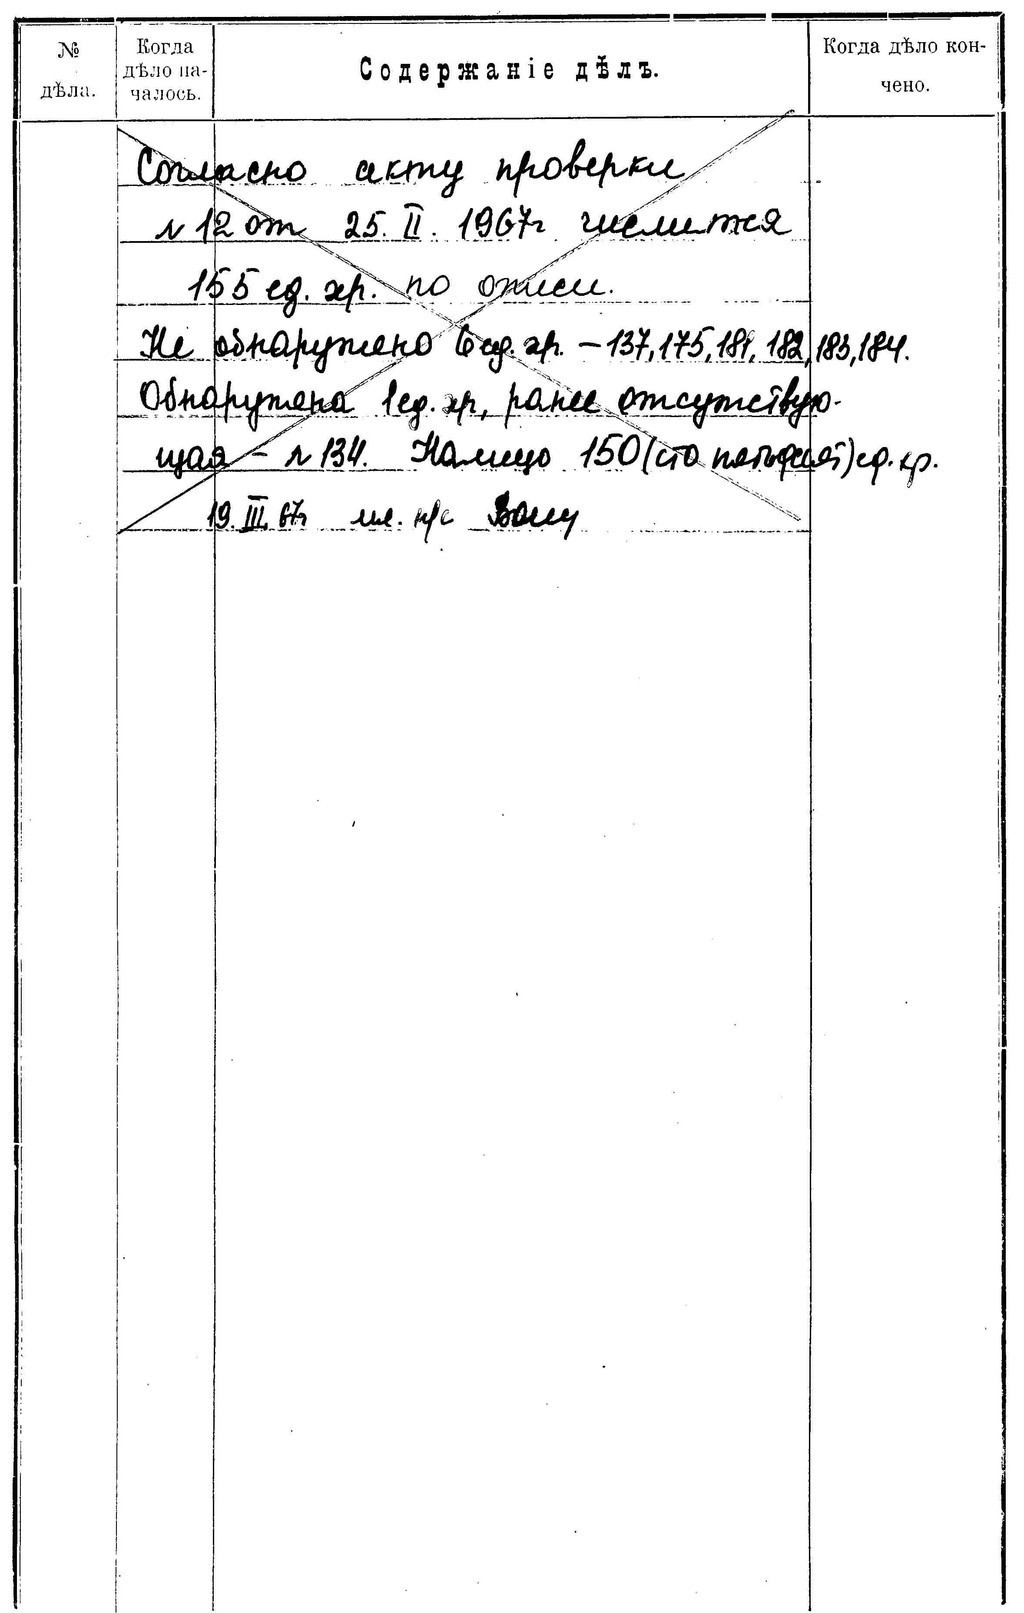 № дѣла.
Когда дѣло на-
чалось.
Содержаніе дѣлъ.
Когда дѣло кон-
чено.
Согласно акту проверки
№ 12 от 25. II. 1967г числится
155 ед. хр. по описи.
Не обнаружено 6 ед. хр. – 137, 175, 181, 182, 183, 184.
Обнаружена 1 ед. хр, ранее отсутствую-
щая – № 134. Налицо 150 (сто пятьдесят) ед. хр.
19. III. 67г мл. н/с